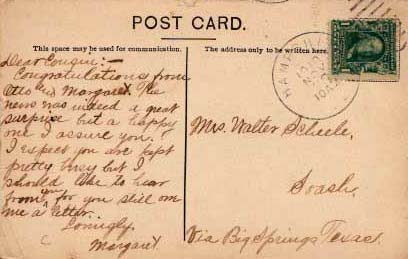 POST CARD.
This space may be used for communication.
The address only to be written here.
Dear Cousin:-
Congratulations from
Otto and Margaret. The
news was indeed a great
surprise but a happy
one I assure you.
I expect you are kept
pretty busy but I
should like to hear
from you for you still owe
me a letter.
Lovingly,
Margaret
Mrs. Walter Scheele,
Soash,
Via Big Springs, Texas.